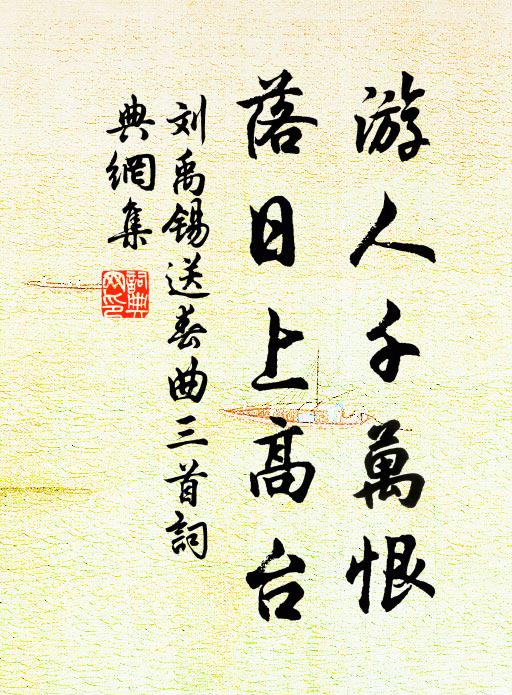 游人千萬恨
落日上高台
刘禹锡送春曲三首詞
典網集
詞典
网印